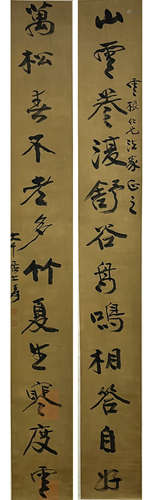 雲根仁兄法家正之
山雲卷復舒谷鳥鳴相答自好
萬松春不老多竹夏生寒度雲
大千居士爰